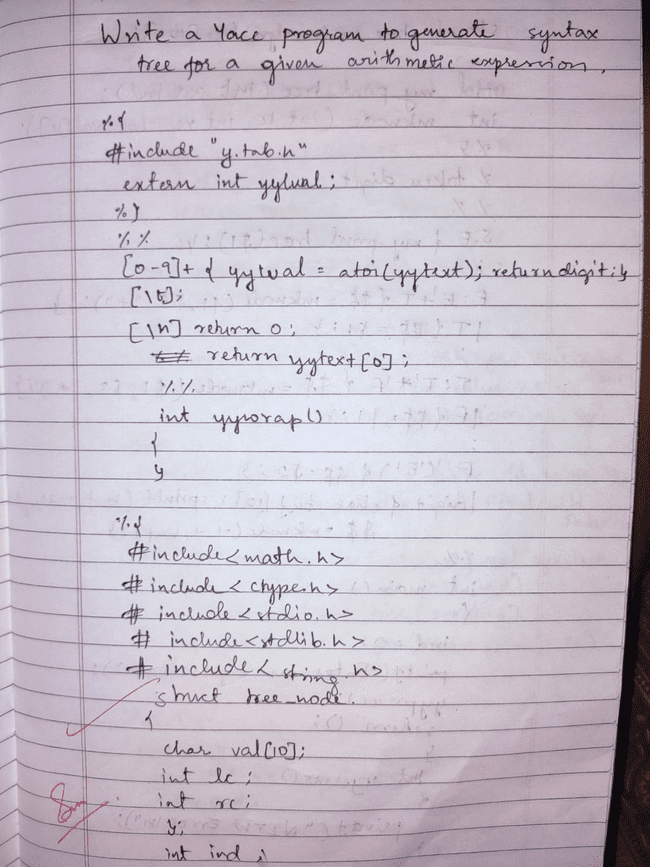 Write a Yacc program to generate syntax
tree for a given arithmetic expression.
%{
#include "y.tab.h"
extern int yylval;
%}
%%
[0-9]+ { yylval = atoi(yytext); return digit;}
[\t];
[\n] return 0;
return yytext[0];
%%
int yywrap()
{
}
%{
#include<math.h>
#include<ctype.h>
#include<stdio.h>
# include<stdlib.h>
# include<string.h>
struct tree_node.
{
char val[10];
int lc;
int rc;
};
int ind;